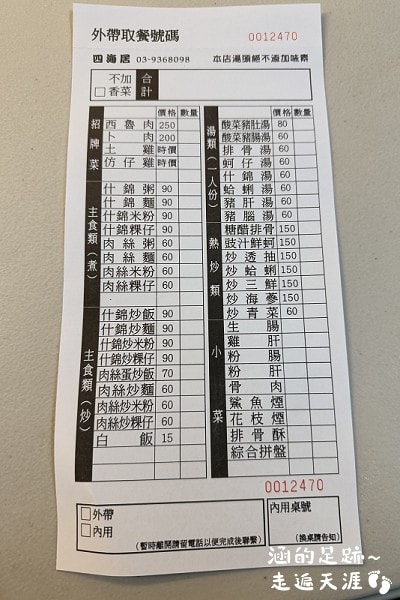 外帶取餐號碼 0012470
四海居 03-9368098 本店湯頭絕不添加味素
不加
□香菜
合計
價格 數量
招牌菜
西魯肉 250
卜肉 200
土雞 時價
仿仔雞 時價
主食類（煮）
什錦粥 90
什錦麵 90
什錦米粉 90
什錦粿仔 90
肉絲粥 60
肉絲麵 60
肉絲米粉 60
肉絲粿仔 60
主食類（炒）
什錦炒飯 90
什錦炒麵 90
什錦炒米粉 90
什錦炒粿仔 90
肉絲蛋炒飯 70
肉絲炒麵 60
肉絲炒米粉 60
肉絲炒粿仔 60
白飯 15
價格 數量
湯類（一人份）
酸菜豬肚湯 80
酸菜豬腸湯 60
排骨湯 60
蚵仔湯 60
什錦湯 60
蛤蜊湯 60
豬肝湯 60
豬腦湯 60
熱炒類
糖醋排骨 150
豉汁鮮蚵 150
炒透抽 150
炒蛤蜊 150
炒三鮮 150
炒海蔘 150
炒青菜 60
小菜
生腸
雞肝
粉腸
粉肝
骨肉
鯊魚煙
花枝煙
排骨酥
綜合拼盤
0012470
□外帶
□內用
(暫時離開請留電話以便完成後聯繫)
內用桌號
(換桌請告知)
涵的足跡~
走遍天涯